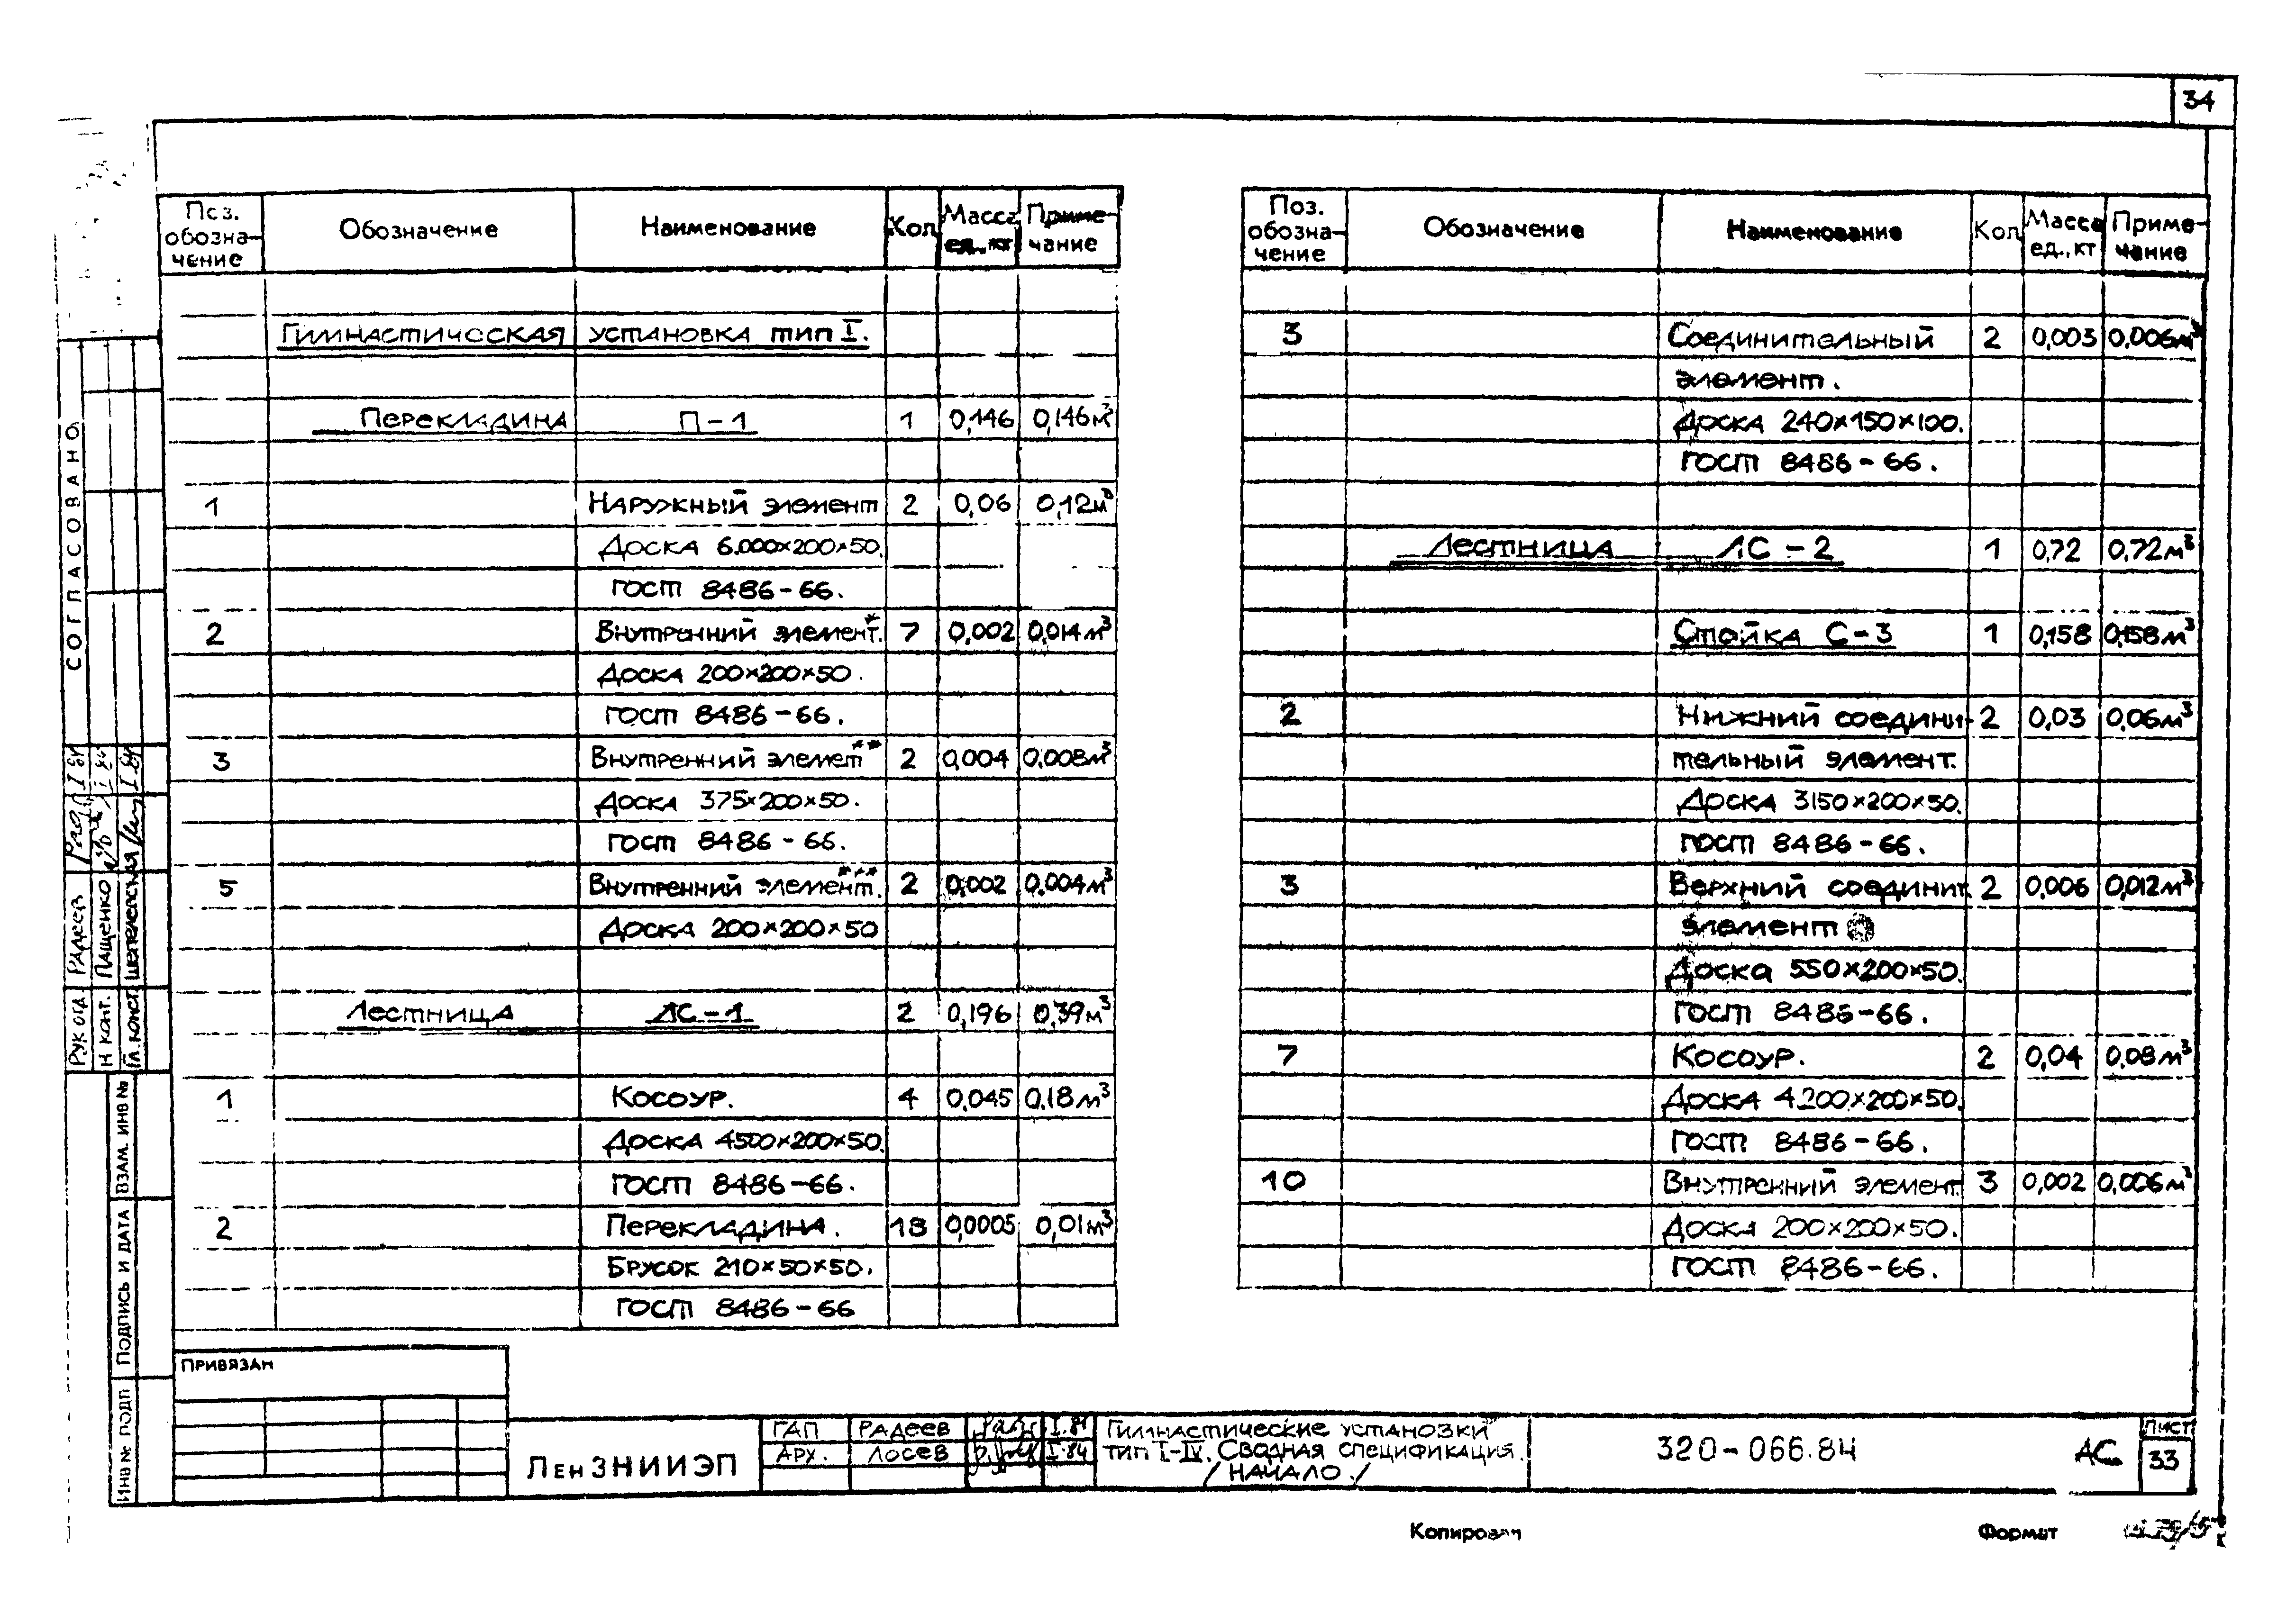 34
Поз. обозна-чение Обозначение Наименование Кол Масса ед., кг Приме-чание
Гимнастическая установка тип I.
Перекладина П-1 1 0,146 0,146м³
1 Наружный элемент 2 0,06 0,12м³
Доска 6.000×200×50.
ГОСТ 8486-66.
2 Внутренний элемент.* 7 0,002 0,014м³
Доска 200×200×50.
ГОСТ 8486-66.
3 Внутренний элемет** 2 0,004 0,008м³
Доска 375×200×50.
ГОСТ 8486-66.
5 Внутренний элемент.*** 2 0,002 0,004м³
Доска 200×200×50
Лестница ЛС-1 2 0,196 0,39м³
1 Косоур. 4 0,045 0.18м³
Доска 4500×200×50.
ГОСТ 8486-66.
2 Перекладина. 18 0,0005 0,01м³
Брусок 210×50×50.
ГОСТ 8486-66
Поз. обозна-чение Обозначение Наименование Кол Масса ед., кг Приме-чание
3 Соединительный 2 0,003 0,006м³
элемент.
Доска 240×150×100.
ГОСТ 8486-66.
Лестница ЛС-2 1 0,72 0,72м³
Стойка С-3 1 0,158 0,158м³
2 Нижний соедини- 2 0,03 0,06м³
тельный элемент.
Доска 3150×200×50.
ГОСТ 8486-66.
3 Верхний соединит. 2 0,006 0,012м³
элемент
Доска 550×200×50.
ГОСТ 8486-66.
7 Косоур. 2 0,04 0,08м³
Доска 4.200×200×50.
ГОСТ 8486-66.
10 Внутренний элемент 3 0,002 0,006м³
Доска 200×200×50.
ГОСТ 8486-66.
СОГЛАСОВАНО
Рук отд Радеев I 84
Н конт. Пащенко I 84
Гл. конст. Шепелевская I 84
ИНВ № ПОДП ПОДПИСЬ И ДАТА ВЗАМ. ИНВ №
ПРИВЯЗАН
ЛенЗНИИЭП
ГАП Радеев I.84
АРХ. Лосев I.84
Гимнастические установки
тип I-IV. Сводная спецификация.
/НАЧАЛО./
320-066.84
АС
Лист
33
Копирован
Формат